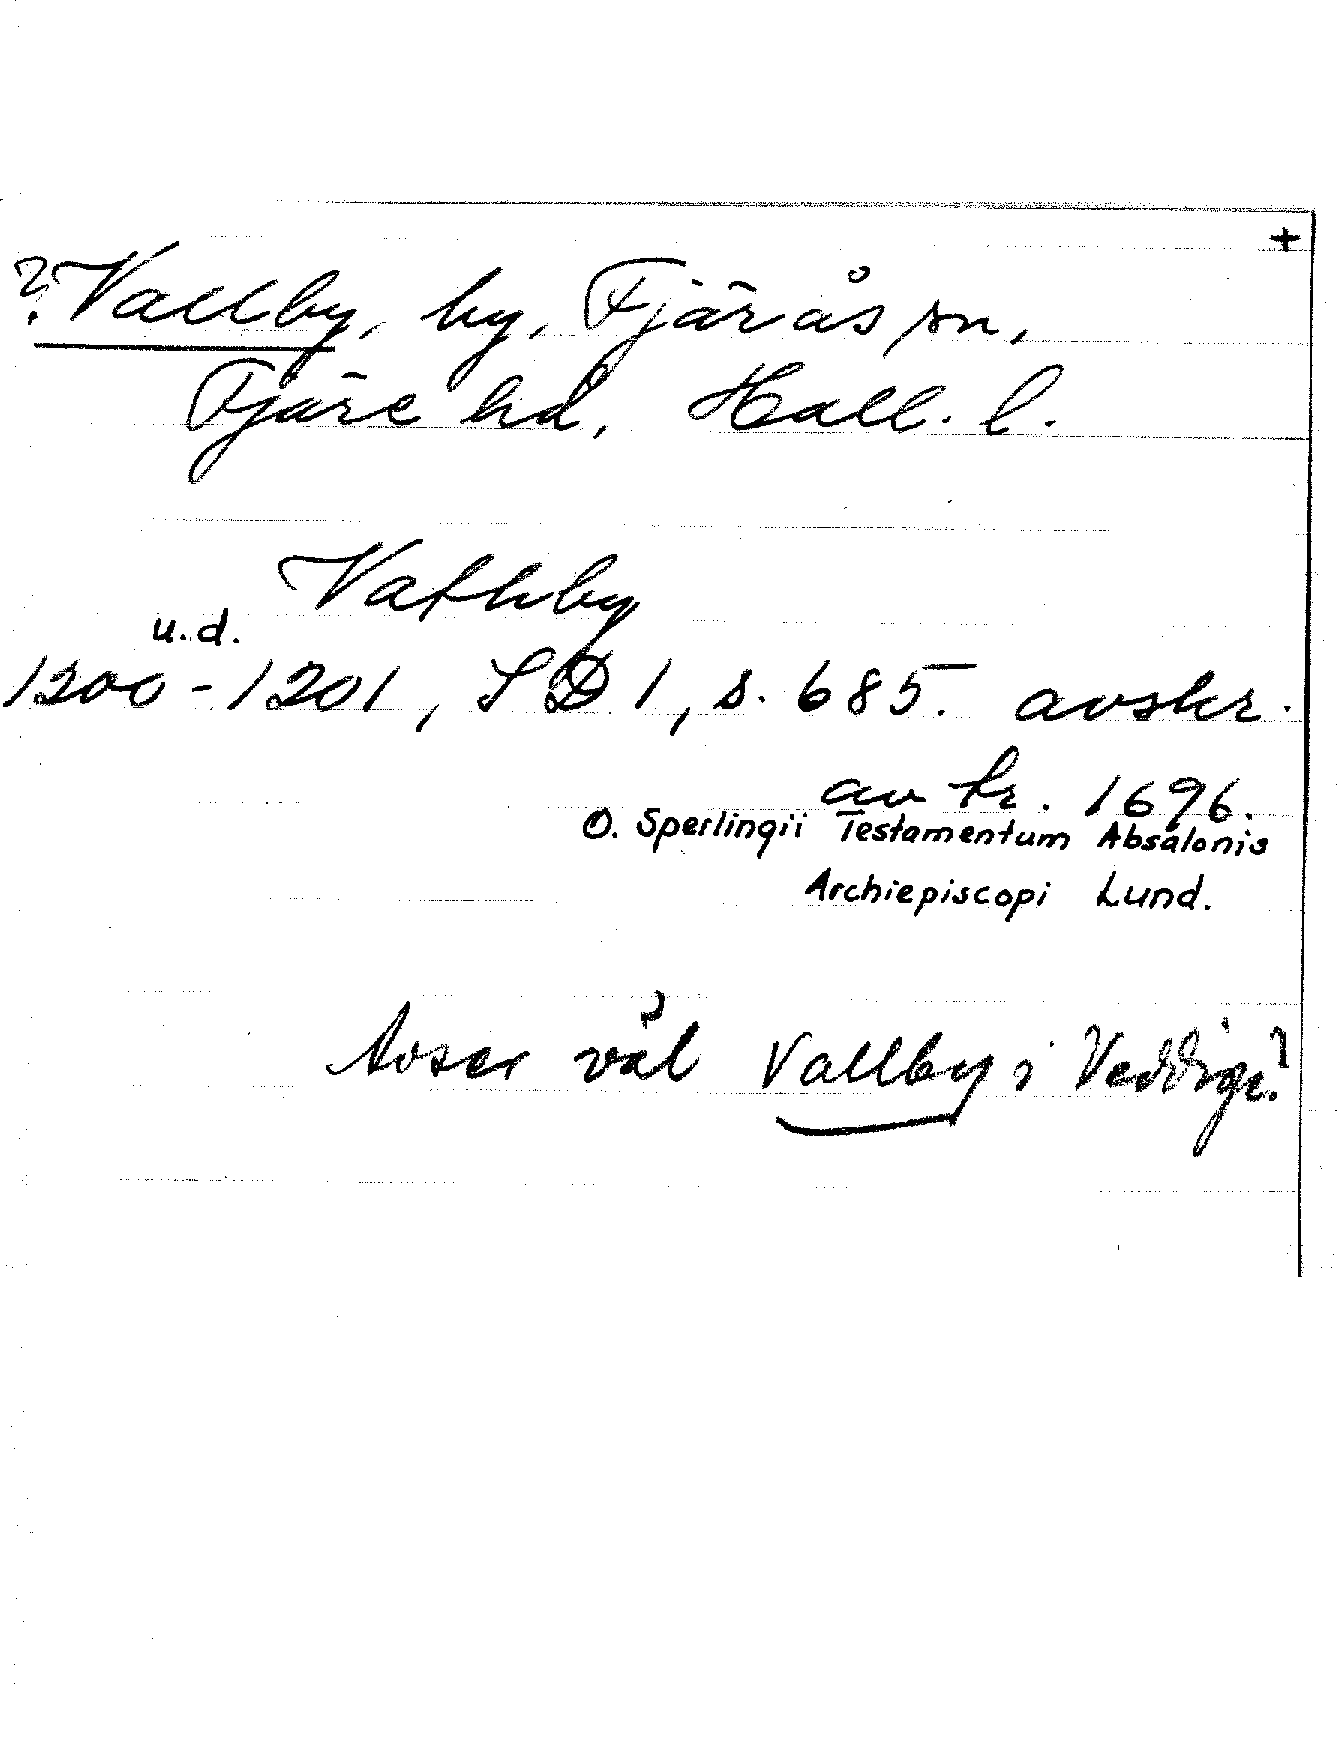 +
? Vallby, by, Fjärås sn,
Fjäre hd, Hall. l.
Vathby
u.d.
1200-1201, SD 1, s. 685. avskr.
av tr. 1696.
O. Sperlingii Testamentum Absalonis
Archiepiscopi Lund.
Avser väl Vallby i Veddige?